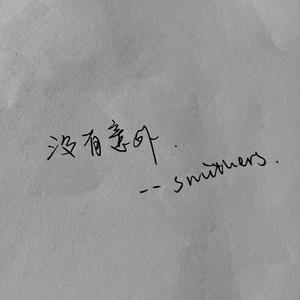 没有意外.
-- smithers.